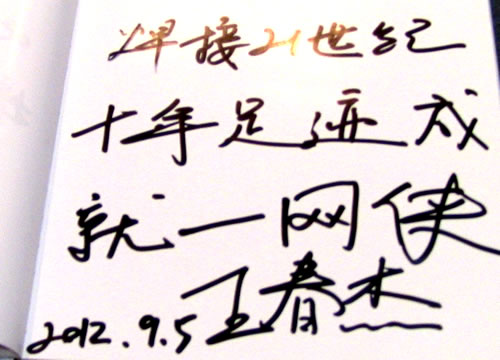 焊接21世纪
十年足迹成
就一网侠
2012.9.5王春杰